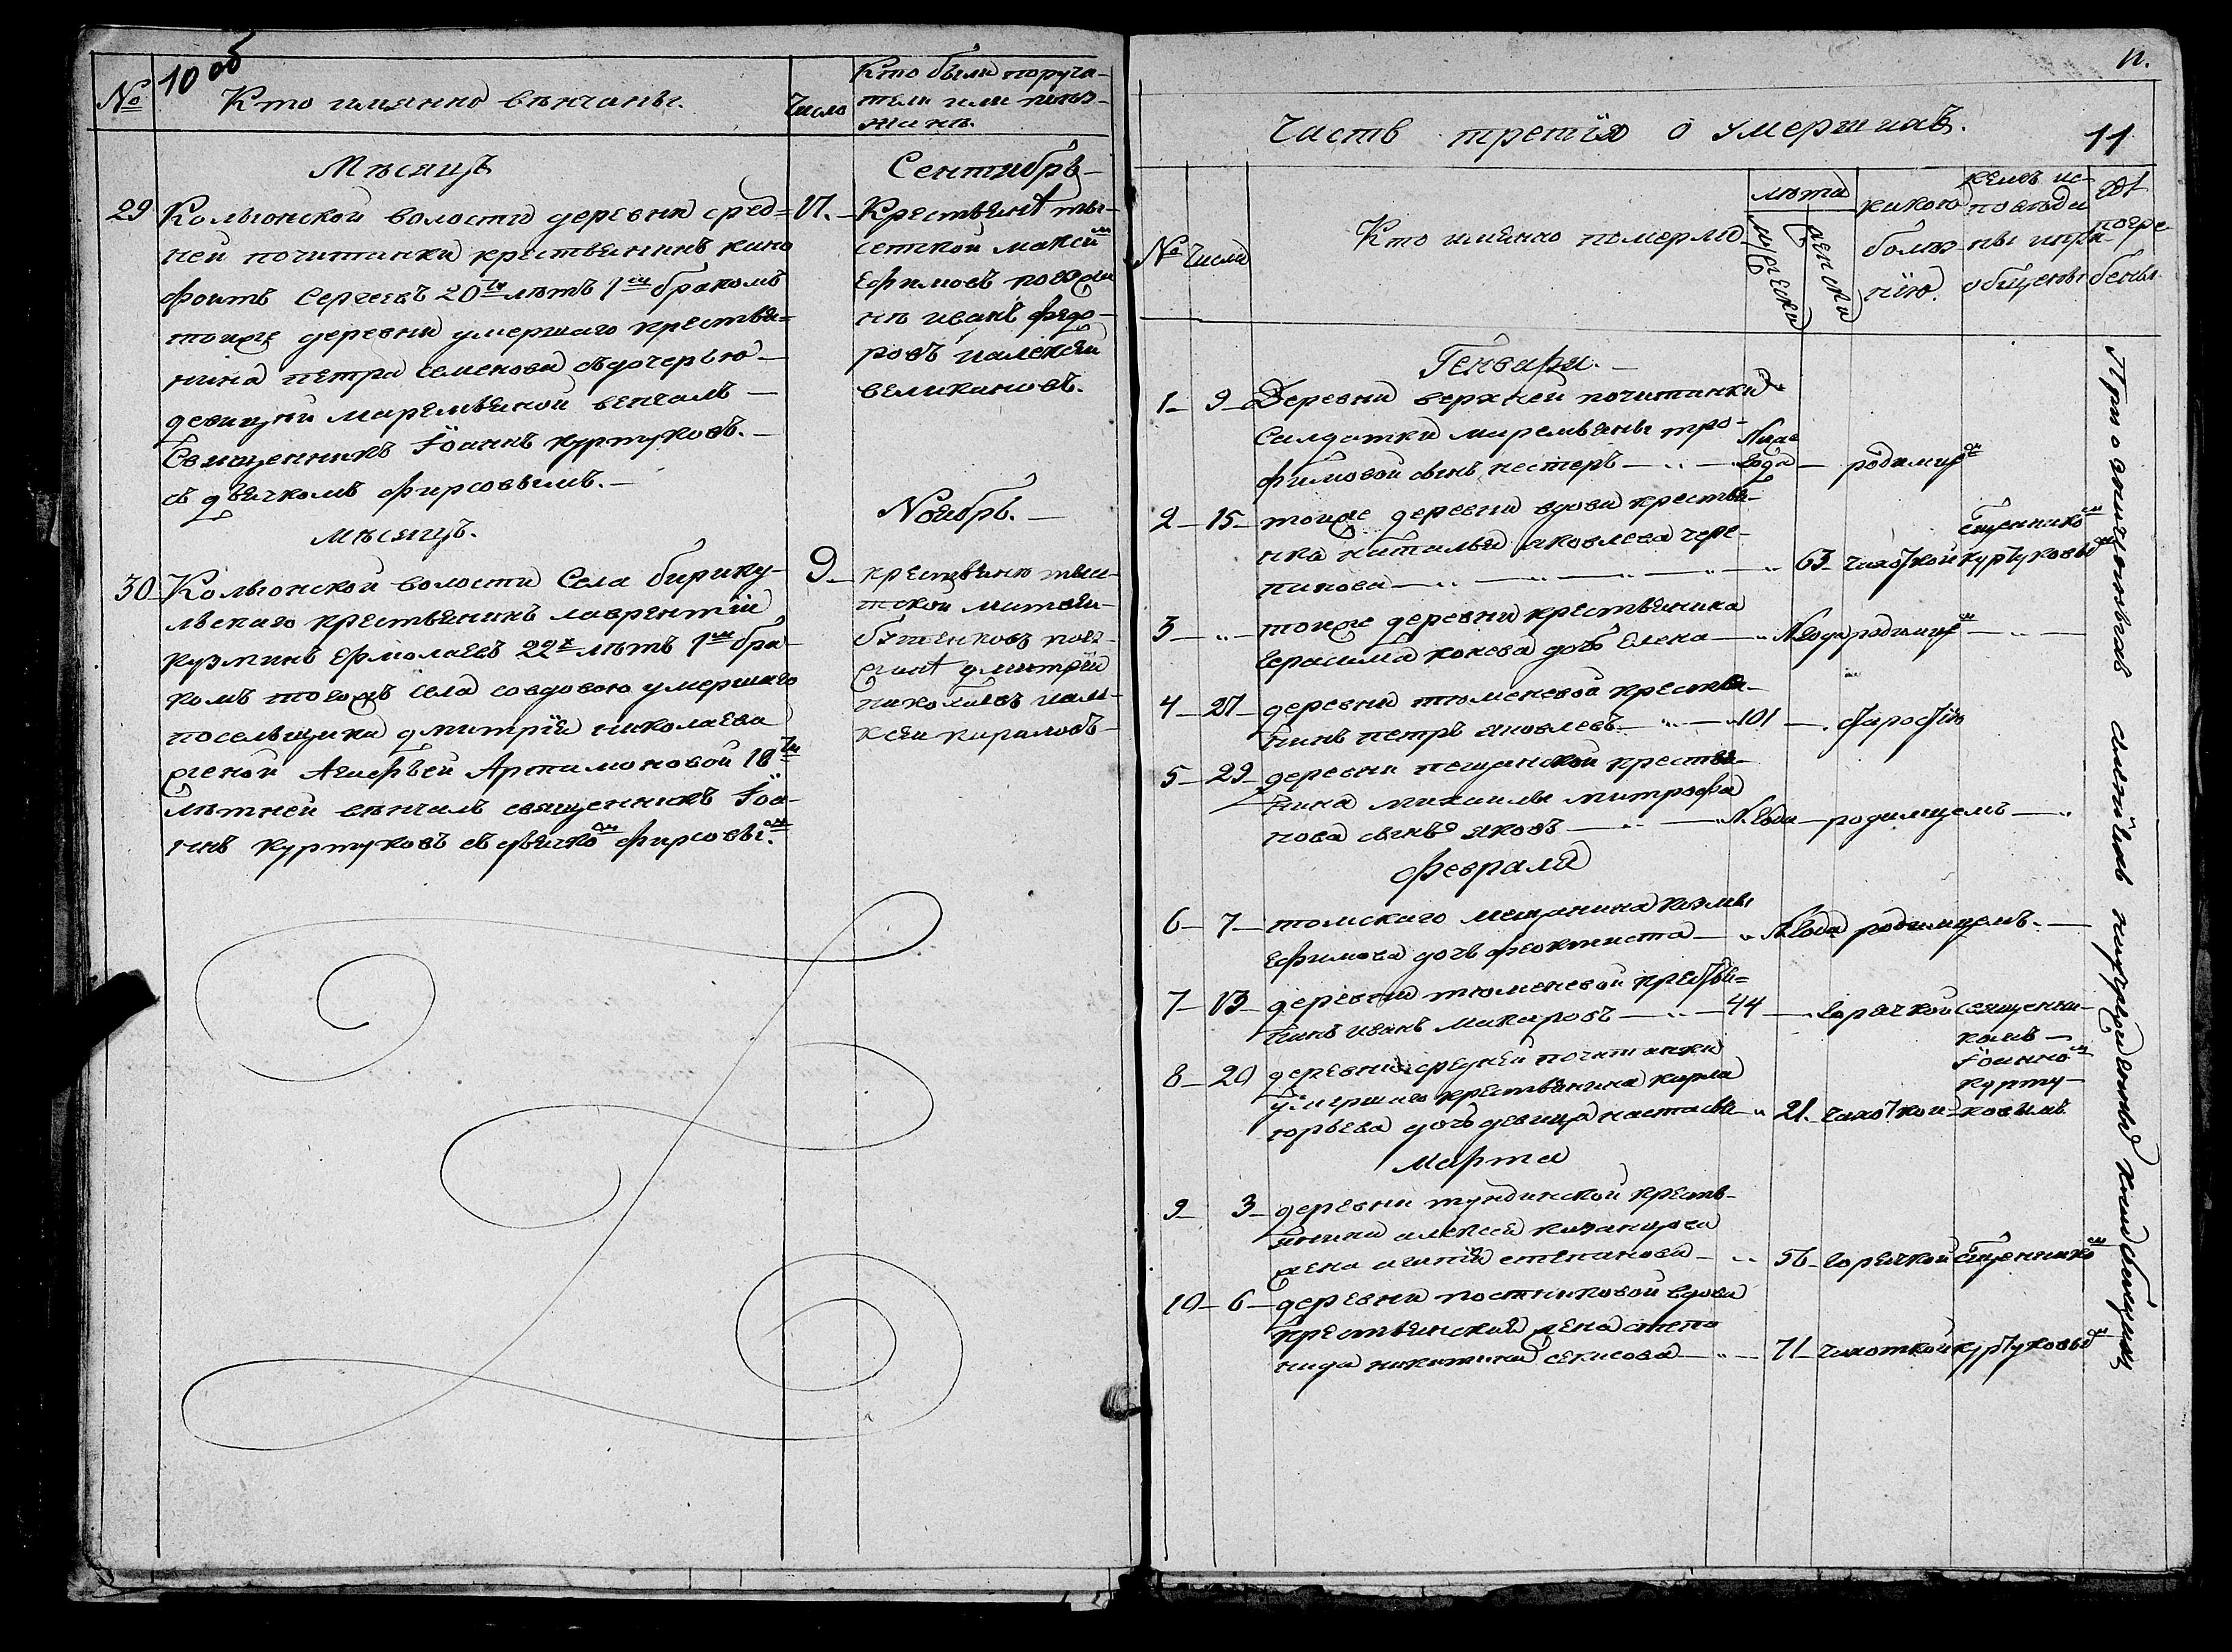 10 об
№
Кто имянно венчаны.
Число
Кто были поруча-
тели или поезз-
жанѣ.
Мѣсяцъ
Сентябрь
29 Кольюнской волости деревни сред=
ней почитанки крестьянинъ кино
фонтъ Сергеевъ 20ти лѣтъ 1мъ бракомъ
тоиже деревни умершаго крестья=
нина петра Семенова съ дочерью
девицей маремьяной венчалъ
Священникъ Іоаннъ куртуковъ.
съ дьячкомъ фирсовымъ.
17.
Крестьяня
сетской максим
Ефимовъ поезжа
нѣ иванъ федо-
ровъ иалексей
великановъ.
мѣсяцъ.
Ноябрь.
30 Кольюнской волости Села бирику-
льскаго крестьянинъ лаврентій
кузминъ Ермолаевъ 22х лѣтъ 1мъ бра
комъ тогожъ села совдовою умершаго
посельщика дмитрія николаева
женой Агафьей Артамоновой 18ти
лѣтней вѣнчалъ священникъ Іоа-
ннъ куртуковъ съ дьячком фирсовым.
9
крестьяне
матвей
дмитрій
николаевъ иале-
ксей
11.
Часть третія о умершихъ.
11
№
Числа
Кто имянно померли
лѣта
мужеска
женска
какою
болез-
нію.
кемъ ис-
поведа
ны ипри-
общены
Где
погре-
бены
Генваря.
1 9 Деревни верхней почитанки
Салдатки маремьяны тро-
фимовой сынъ нестеръ ½ года родимцом
2 15 тоиже деревни вдова крестья-
нка наталья яковлева чере-
панова 63 чахоткой Священником куртуковым
3 тоиже деревни крестьянина
Герасима конева дочь Елена ½ года родимцом
4 27 деревни тюменевой крестья-
нинъ петръ яковлевъ 101 старостію
5 29 деревни пещанской крестья-
нина михаилы митрофа
нова сынъ яковъ ½ года родимцемъ
февраля
6 7 томскаго мещанина козмы
Ефимова дочь феоктиста ½ года родимцемъ.
7 13 деревни тюменевой крестья=
нинъ иванъ макаровъ 44 горячкой священни-
комъ
8 20 деревни средней почитанки
умершаго крестьянина карпа
юрьева дочь девица настасья 21. чахоткой
Іоанном
курту-
ковымъ
Марта
9 3 деревни тундинской кресть-
янина алексея казанцова
жена агапія степанова 56 горячкой Священником
10 6 деревни постниковой вдова
крестьянская жена степа
нида никитина секисова 71 чахоткой куртуковым
При